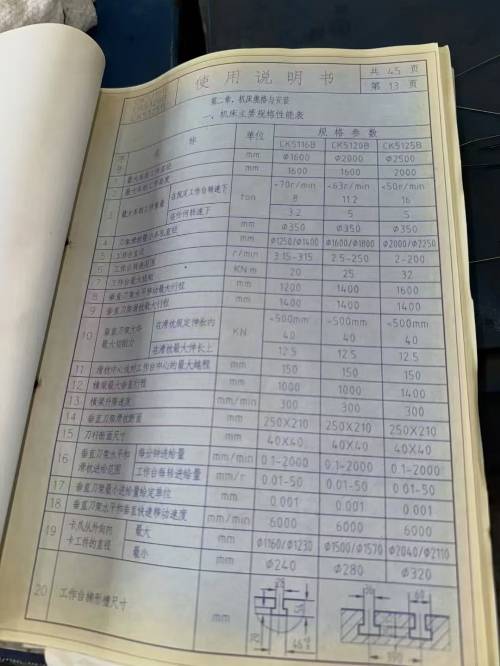 使用说明书
共 45 页
第 13 页
第二章、机床规格与安装
一、机床主要规格性能表
序号 名 称 单位 规格参数
CK5116B CK5120B CK5125B
1 最大车削工件直径 mm Φ1600 Φ2000 Φ2500
2 最大车削工件高度 mm 1600 1600 2000
3 最大车削工件重量 在规定工作台转速下 ton <70r/min <63r/min <50r/min
8 11.2 16
在任何转速下 3.2 5 5
4 mm Φ350 Φ350 Φ350
5 工作台直径 mm Φ1250/Φ1400 Φ1600/Φ1800 Φ2000/Φ2250
6 工作台转速范围 r/min 3.15-315 2.5-250 2-200
7 工作台最大扭矩 KN m 20 25 32
8 垂直刀架水平移动最大行程 mm 1200 1400 1600
9 垂直刀架滑枕最大行程 mm 1400 1400 1400
10 垂直刀架最大总切削力 在滑枕规定伸长内 KN <500mm <500mm <500mm
40 40 40
在滑枕最大伸长上 12.5 12.5 12.5
11 滑枕中心线对工作台中心的最大越程 mm 150 150 150
12 横梁最大垂直行程 mm 1000 1000 1400
13 横梁升降速度 mm/min 300 300 300
14 垂直刀架滑枕断面 mm 250X210 250X210 250X210
15 刀杆断面尺寸 mm 40X40 40X40 40X40
16 垂直刀架水平和滑枕进给范围 每分钟进给量 mm/min 0.1-2000 0.1-2000 0.1-2000
工作台每转进给量 mm/r 0.01-50 0.01-50 0.01-50
17 垂直刀架最小进给量给定单位 mm 0.001 0.001 0.001
18 垂直刀架水平和垂直快速移动速度 mm/min 6000 6000 6000
19 卡爪从外向内卡工件的直径 最大 mm Φ1160/Φ1230 Φ1500/Φ1570 Φ2040/Φ2110
最小 Φ240 Φ280 Φ320
20 工作台梯形槽尺寸 mm